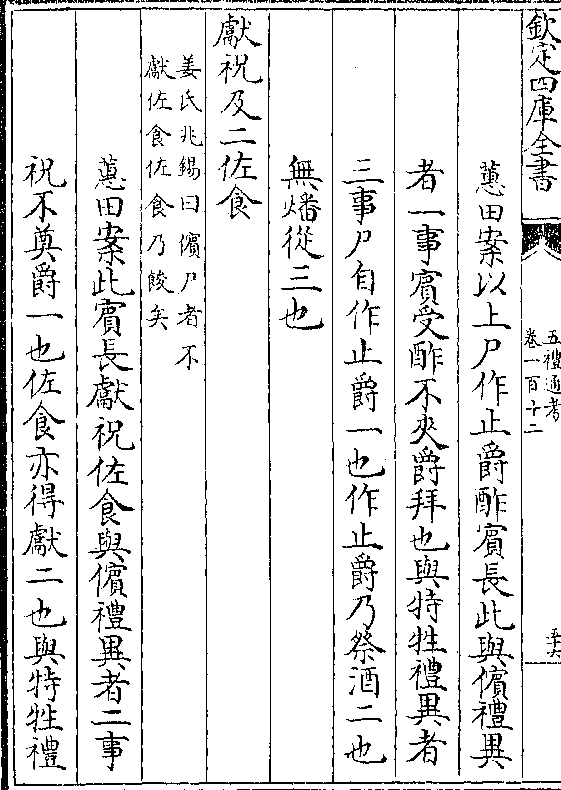 欽定四庫全書
五禮通考
卷一百十二
五十六
蕙田案以上尸作止爵酢賓長此與儐禮異
者一事賓受酢不夾爵拜也與特牲禮異者
三事尸自作止爵一也作止爵乃祭酒二也
無燔從三也
獻祝及二佐食
姜氏兆錫曰儐尸者不
獻佐食佐食乃餕矣
蕙田案此賓長獻祝佐食與儐禮異者二事
祝不奠爵一也佐食亦得獻二也與特牲禮